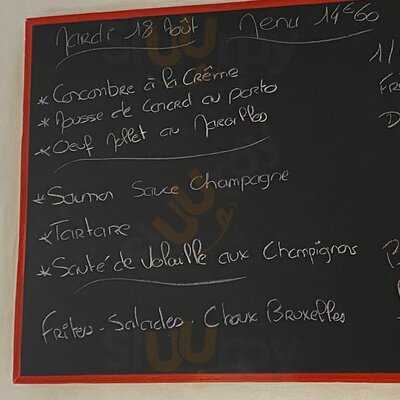 Mardi 18 Août Menu 14€60
* Concombre à la Crême
* Mousse de Canard au porto
* Oeuf Mollet au Maroilles
* Saumon Sauce Champagne
* Tartare
* Sauté de Volaille aux Champignons
Frites - Salades - Choux Bruxelles
1/